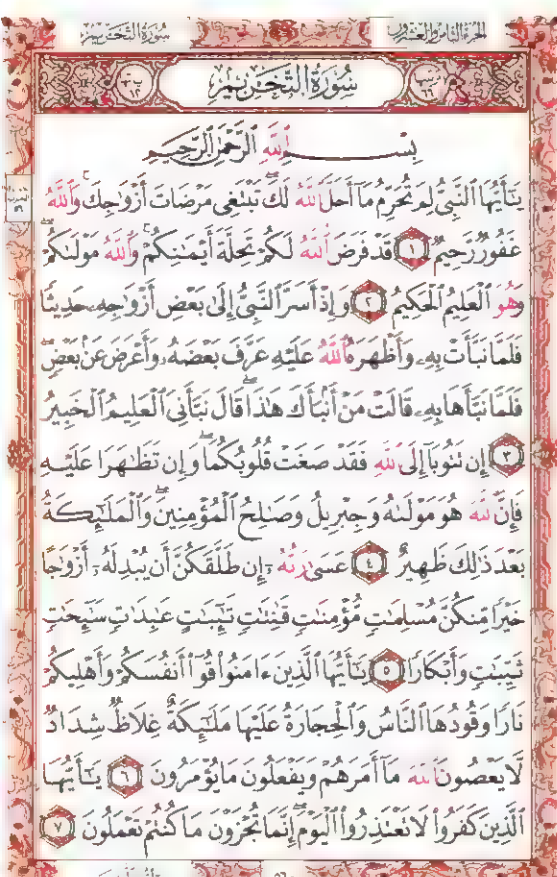 الجزء الثامن والعشرون سُورَةُ التَّحْرِيمِ
سُورَةُ التَّحْرِيمِ
بِسْمِ ٱللَّهِ ٱلرَّحْمَٰنِ ٱلرَّحِيمِ
يَٰٓأَيُّهَا ٱلنَّبِىُّ لِمَ تُحَرِّمُ مَآ أَحَلَّ ٱللَّهُ لَكَ ۖ تَبْتَغِى مَرْضَاتَ أَزْوَٰجِكَ ۚ وَٱللَّهُ
غَفُورٌ رَّحِيمٌ ١ قَدْ فَرَضَ ٱللَّهُ لَكُمْ تَحِلَّةَ أَيْمَٰنِكُمْ ۚ وَٱللَّهُ مَوْلَىٰكُمْ
وَهُوَ ٱلْعَلِيمُ ٱلْحَكِيمُ ٢ وَإِذْ أَسَرَّ ٱلنَّبِىُّ إِلَىٰ بَعْضِ أَزْوَٰجِهِۦ حَدِيثًا
فَلَمَّا نَبَّأَتْ بِهِۦ وَأَظْهَرَهُ ٱللَّهُ عَلَيْهِ عَرَّفَ بَعْضَهُۥ وَأَعْرَضَ عَنۢ بَعْضٍ ۖ
فَلَمَّا نَبَّأَهَا بِهِۦ قَالَتْ مَنْ أَنۢبَأَكَ هَٰذَا ۖ قَالَ نَبَّأَنِىَ ٱلْعَلِيمُ ٱلْخَبِيرُ
٣ إِن تَتُوبَآ إِلَى ٱللَّهِ فَقَدْ صَغَتْ قُلُوبُكُمَا ۖ وَإِن تَظَٰهَرَا عَلَيْهِ
فَإِنَّ ٱللَّهَ هُوَ مَوْلَىٰهُ وَجِبْرِيلُ وَصَٰلِحُ ٱلْمُؤْمِنِينَ ۖ وَٱلْمَلَٰٓئِكَةُ
بَعْدَ ذَٰلِكَ ظَهِيرٌ ٤ عَسَىٰ رَبُّهُۥٓ إِن طَلَّقَكُنَّ أَن يُبْدِلَهُۥٓ أَزْوَٰجًا
خَيْرًا مِّنكُنَّ مُسْلِمَٰتٍ مُّؤْمِنَٰتٍ قَٰنِتَٰتٍ تَٰٓئِبَٰتٍ عَٰبِدَٰتٍ سَٰٓئِحَٰتٍ
ثَيِّبَٰتٍ وَأَبْكَارًا ٥ يَٰٓأَيُّهَا ٱلَّذِينَ ءَامَنُوا۟ قُوٓا۟ أَنفُسَكُمْ وَأَهْلِيكُمْ
نَارًا وَقُودُهَا ٱلنَّاسُ وَٱلْحِجَارَةُ عَلَيْهَا مَلَٰٓئِكَةٌ غِلَاظٌ شِدَادٌ
لَّا يَعْصُونَ ٱللَّهَ مَآ أَمَرَهُمْ وَيَفْعَلُونَ مَا يُؤْمَرُونَ ٦ يَٰٓأَيُّهَا
ٱلَّذِينَ كَفَرُوا۟ لَا تَعْتَذِرُوا۟ ٱلْيَوْمَ ۖ إِنَّمَا تُجْزَوْنَ مَا كُنتُمْ تَعْمَلُونَ ٧